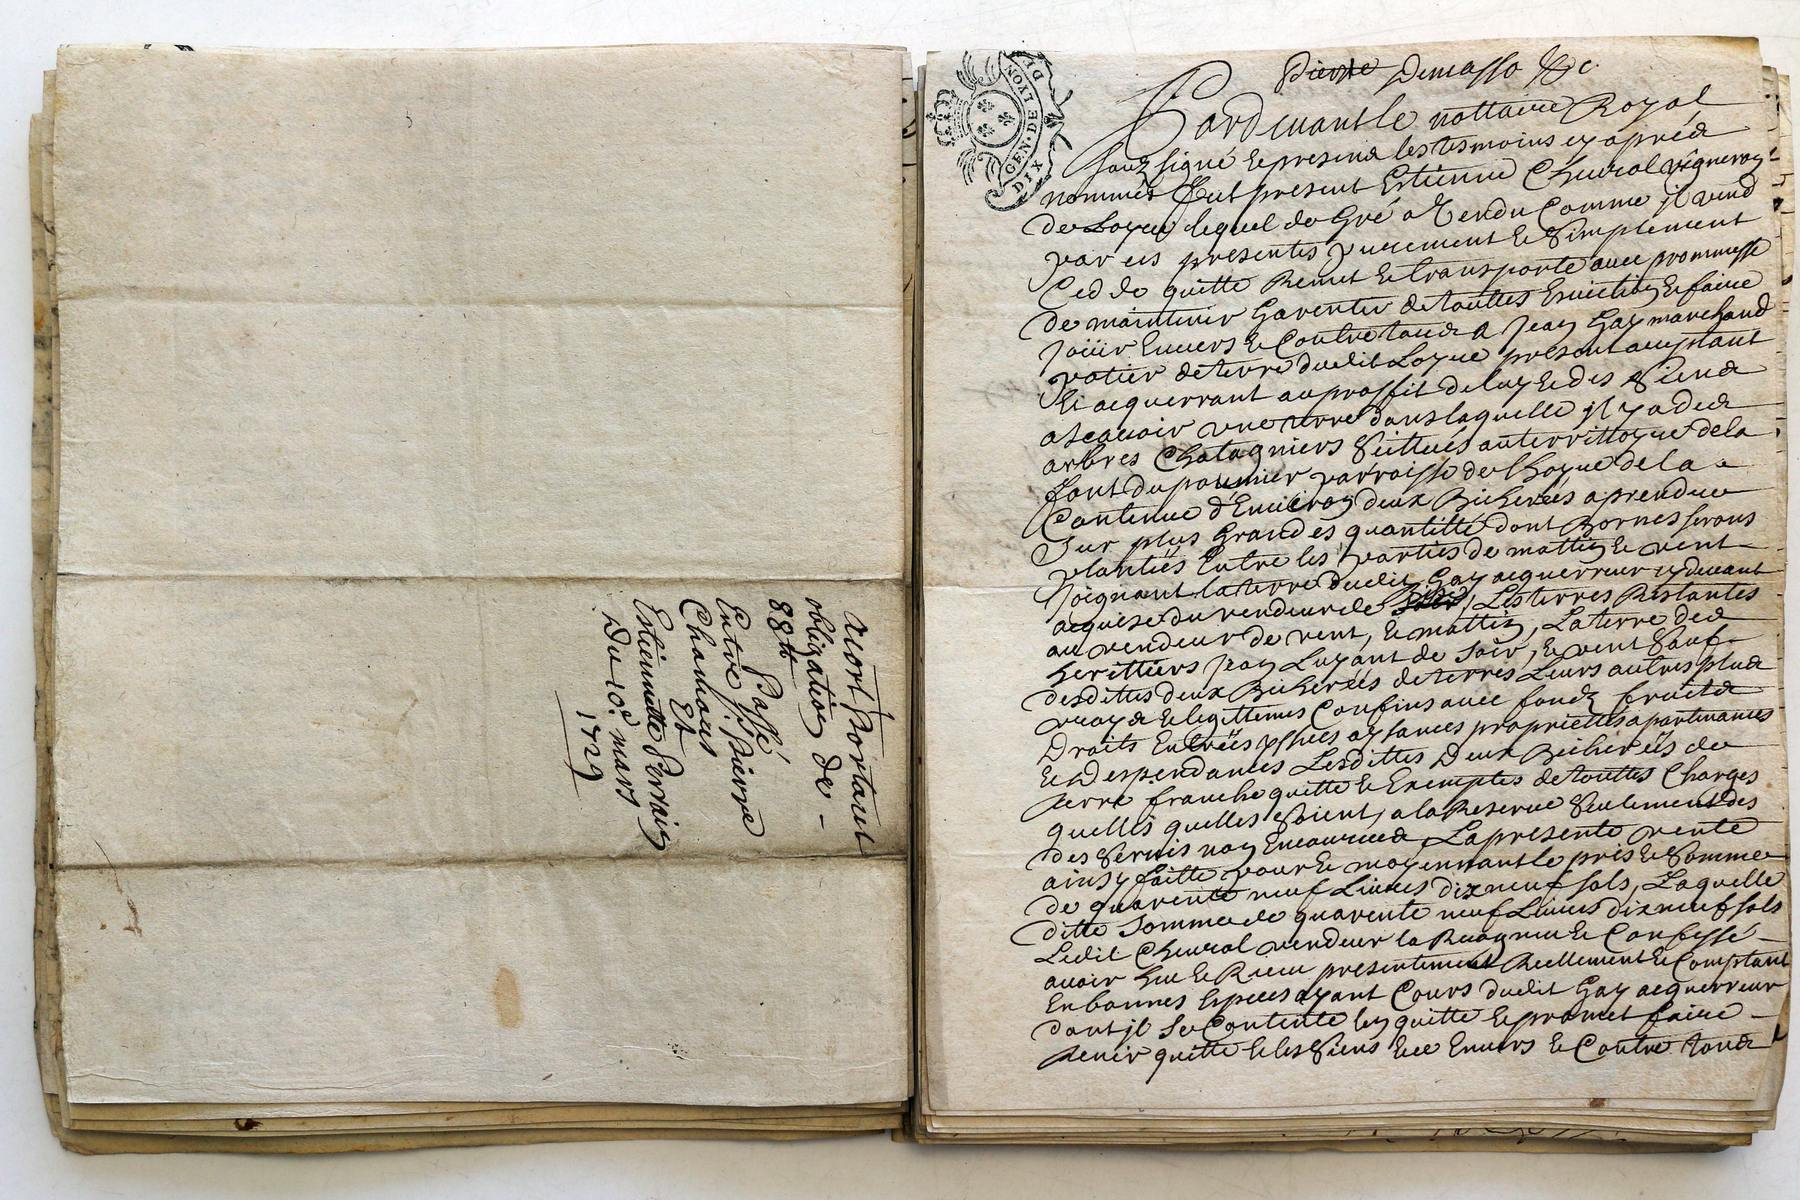 acort Portant
obligation de
88tt
Passé
Entre S.r Pierre
Chamous
Et
Estiennette Perrain
Du 10e mars
1729
GEN. DE LYON
DIX DE
Pierre Demasso &c.
Pardevant le nottaire Royal
souz signé & presens les tesmoins cy apres
nommés Feut present Estienne Chevral vigneron
de Loyeu lequel de Gré a Vendu Comme jl vend
par ces presentes purement & Simplement
Cedde quitte Remet & transporte avec prommesse
de maintenir Garentir de touttes Eviction & faire
joüir Envers & Contre tous a Jean Gay marchand
potier de terre dudit Loyeu present acceptant
& acquerrant au proffit de luy & des Siens
ascavoir une terre dans laquelle jl y a des
arbres Chatagniers Scittués au territtoyre de la
font du paumier parroisse de Loyeu de la
Contenue d'Environ deux Bicherées a prendre
Sur plus Grandes quantitté dont Bornes serons
plantées Entre les parties de mattin & vent
Joignant la terre dudit Gay acquerreur cy devant
acquise du vendeur de Les terres Restantes
au vendeur de vent, & mattin, La terre des
heritiers Jean Luyant de Soir, & vent Sauf
desdittes deux Bicherées de terres Leurs autres plus
vrays & legittimes Confins avec fondz fruits
Droits Entrées yssues aysances proprietés apartenances
& Despendances Lesdittes Deux Bicherées de
terre franche quitte & Exemptes de touttes Charges
quelles quelles Soient, a la Reserve Seulement des
des Servis non Encourues, La presente vente
ainsy faitte pour & moyennant le pris & Somme
de quarente neuf Livres dix neuf sols, Laquelle
ditte Somme de quarente neuf Livres dix neuf sols
Ledit Chevral vendeur la Recogneu & Confessé
avoir heu & Receu presentement Reellement & Comptant
En bonnes Especes ayant Cours dudit Gay acquerreur
dont jl Se Contente len quitte & promet faire
tenir quitte & les Siens Envers & Contre tous